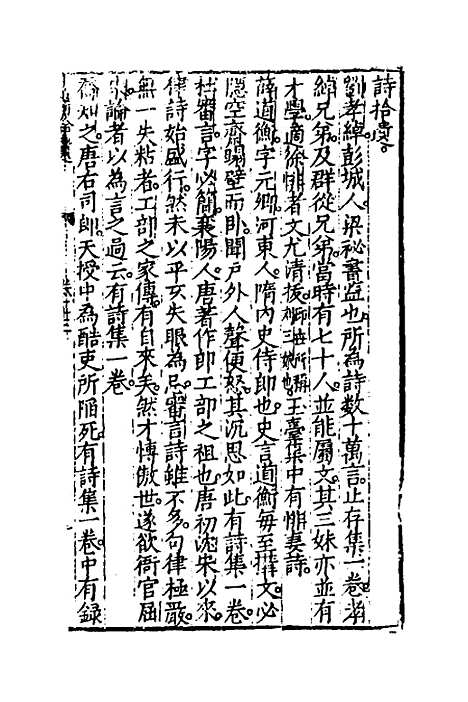 詩拾慶
劉孝綽彭城人梁祕書監也所為詩數十萬言止存集一卷
綽兄弟及群從兄弟當時有七十人並能屬文其三妹亦並有
才學適徐悱者文尤清拔所謂三娘也玉臺集中有悱妻詩
薛道衡字元卿河東人隋内史侍郎也史言道衡每至搆文必
隱空齋蹋壁而卧聞户外人聲便怒其沉思如此有詩集一卷
杜審言字必簡襄陽人唐著作郎工部之祖也唐初沈宋以來
律詩始盛行然未以平仄失眼為忌審言詩雖不多句律極嚴
無一失粘者工部之家傳有自來矣然才愽傲世遂欲衙官屈
論者以為言之過云有詩集一卷
喬知之唐右司郎天授中為酷吏所陷死有詩集一卷中有録